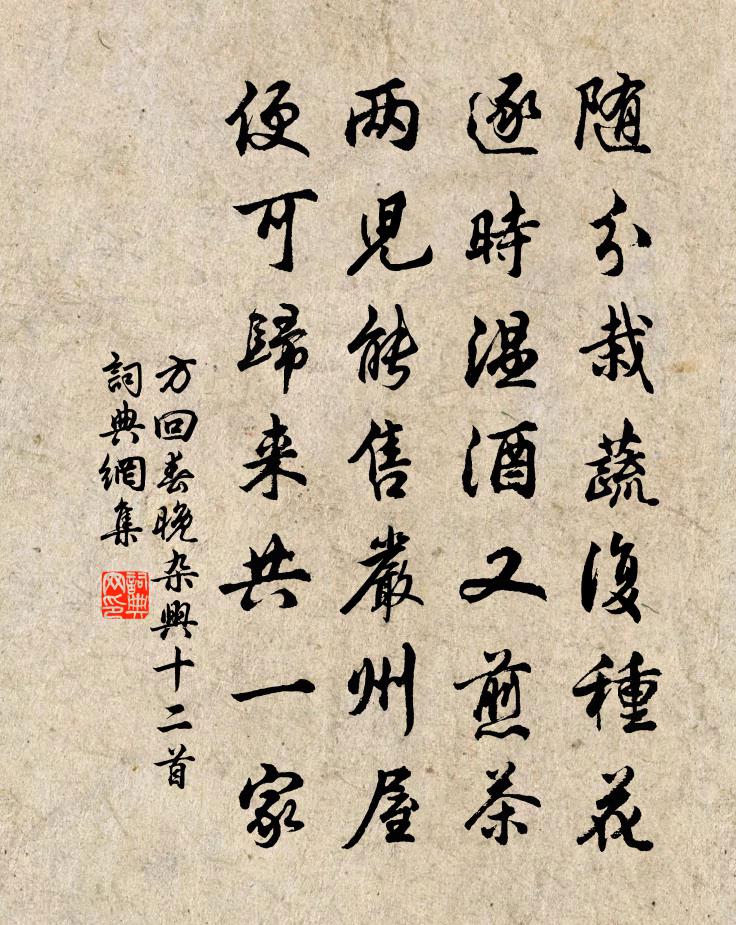 随分栽蔬復種花
逐時温酒又煎茶
两兒能售嚴州屋
便可歸来共一家
方回春晚杂興十二首
詞典網集
詞典網印